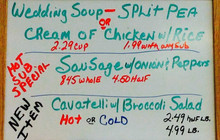 Wedding Soup - Split Pea
OR
Cream of Chicken w/Rice
2.29 cup 1.99 with any sub
HOT SUB SPECIAL
Sausage w/onion & Peppers
8.45 whole 4.60 Half
NEW ITEM
Cavatelli w/Broccoli Salad
Hot or Cold
2.49 half LB.
4.99 LB.